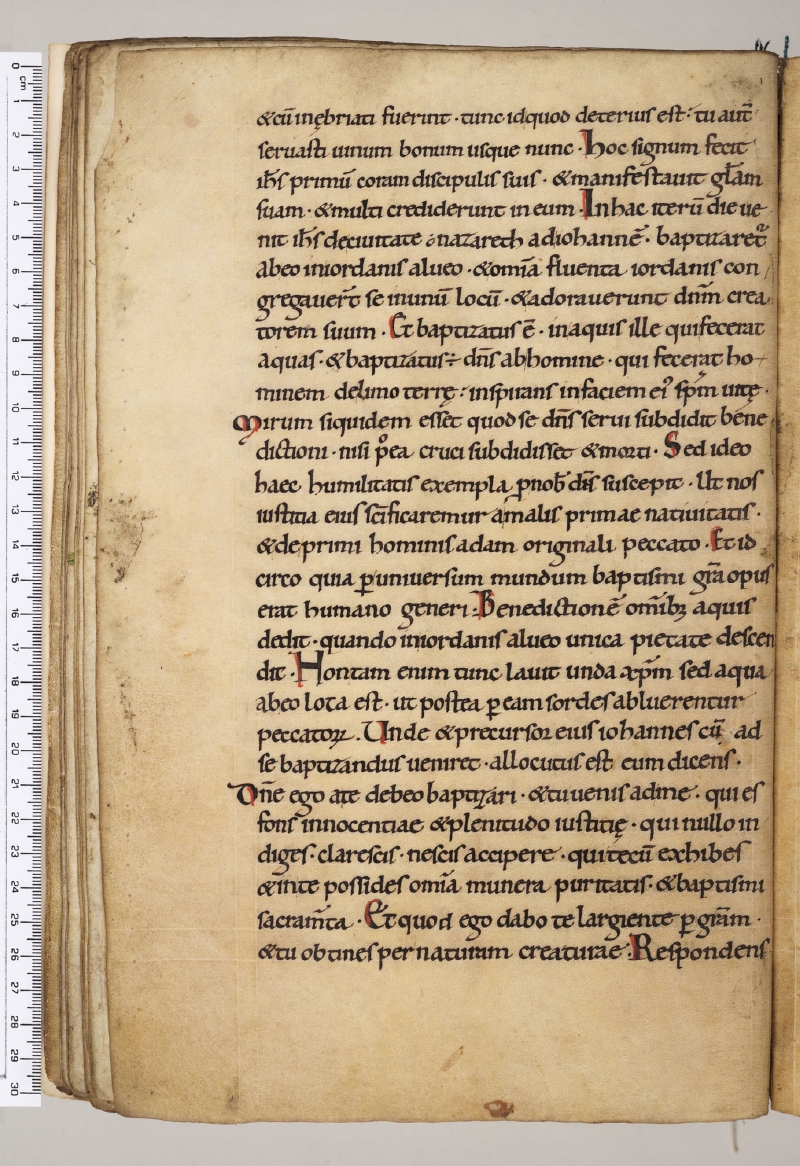 &cū inębriati fuerint · tunc id quod deterius est · tu aut̄
seruasti uinum bonum usque nunc · Hoc signum fecit
ih̄s primū coram discipulis suis · & manifestauit gl̄am
suam · & multi crediderunt in eum · In hac iterū die ue
nit ih̄s de ciuitate nazareth ad iohannē · baptizaret᷑
ab eo in iordanis alueo · & om̄ia fluenta iordanis con
gregauer̄t se in unū locū · & adorauerunt dn̄m crea
torem suum · Et baptizatus ē · in aquis ille qui fecerat
aquas · & baptizatus ÷ dn̄s ab homine · qui fecerat ho
minem de limo terrę · inspirans in faciem ei᾽ sp̄m uitę ·
Mirum siquidem esset quod se dn̄s serui subdidit bene
dictioni · nisi p̊ea cruci subdidisset & morti · Sed ideo
haec humilitatis exempla ꝓ nob̄ dn̄s suscepit · Ut nos
iustitia eius sc̄ificaremur a malis primae natiuitatis ·
& de primi hominis adam originali peccato · Et id
circo quia ꝑ uniuersum mundum baptismi gr̄a opus
erat humano generi · Benedictionē om̄ibꝫ aquis
dedit · quando in iordanis alueo unica pietate descen
dit · Hon tam enim tunc lauit unda xp̄m sed aqua
ab eo lota est · ut postea ꝑ eam sordes abluerentur
peccatoꝝ · Unde & precursor eius iohannes cū ad
se baptizandus ueniret · allocutus est eum dicens ·
Dn̄e ego a te debeo baptizari · & tu uenis ad me · qui es
fons innocentiae & plenitudo iustitię · qui nullo in
diges · clarescis · nescis accipere · qui tecū exhibes
& in te possides om̄ia munera puritatis · & baptismi
sacram̄ta · Et quod ego dabo te largiente ꝑ gr̄am ·
& tu obtines per naturam creaturae · Respondens